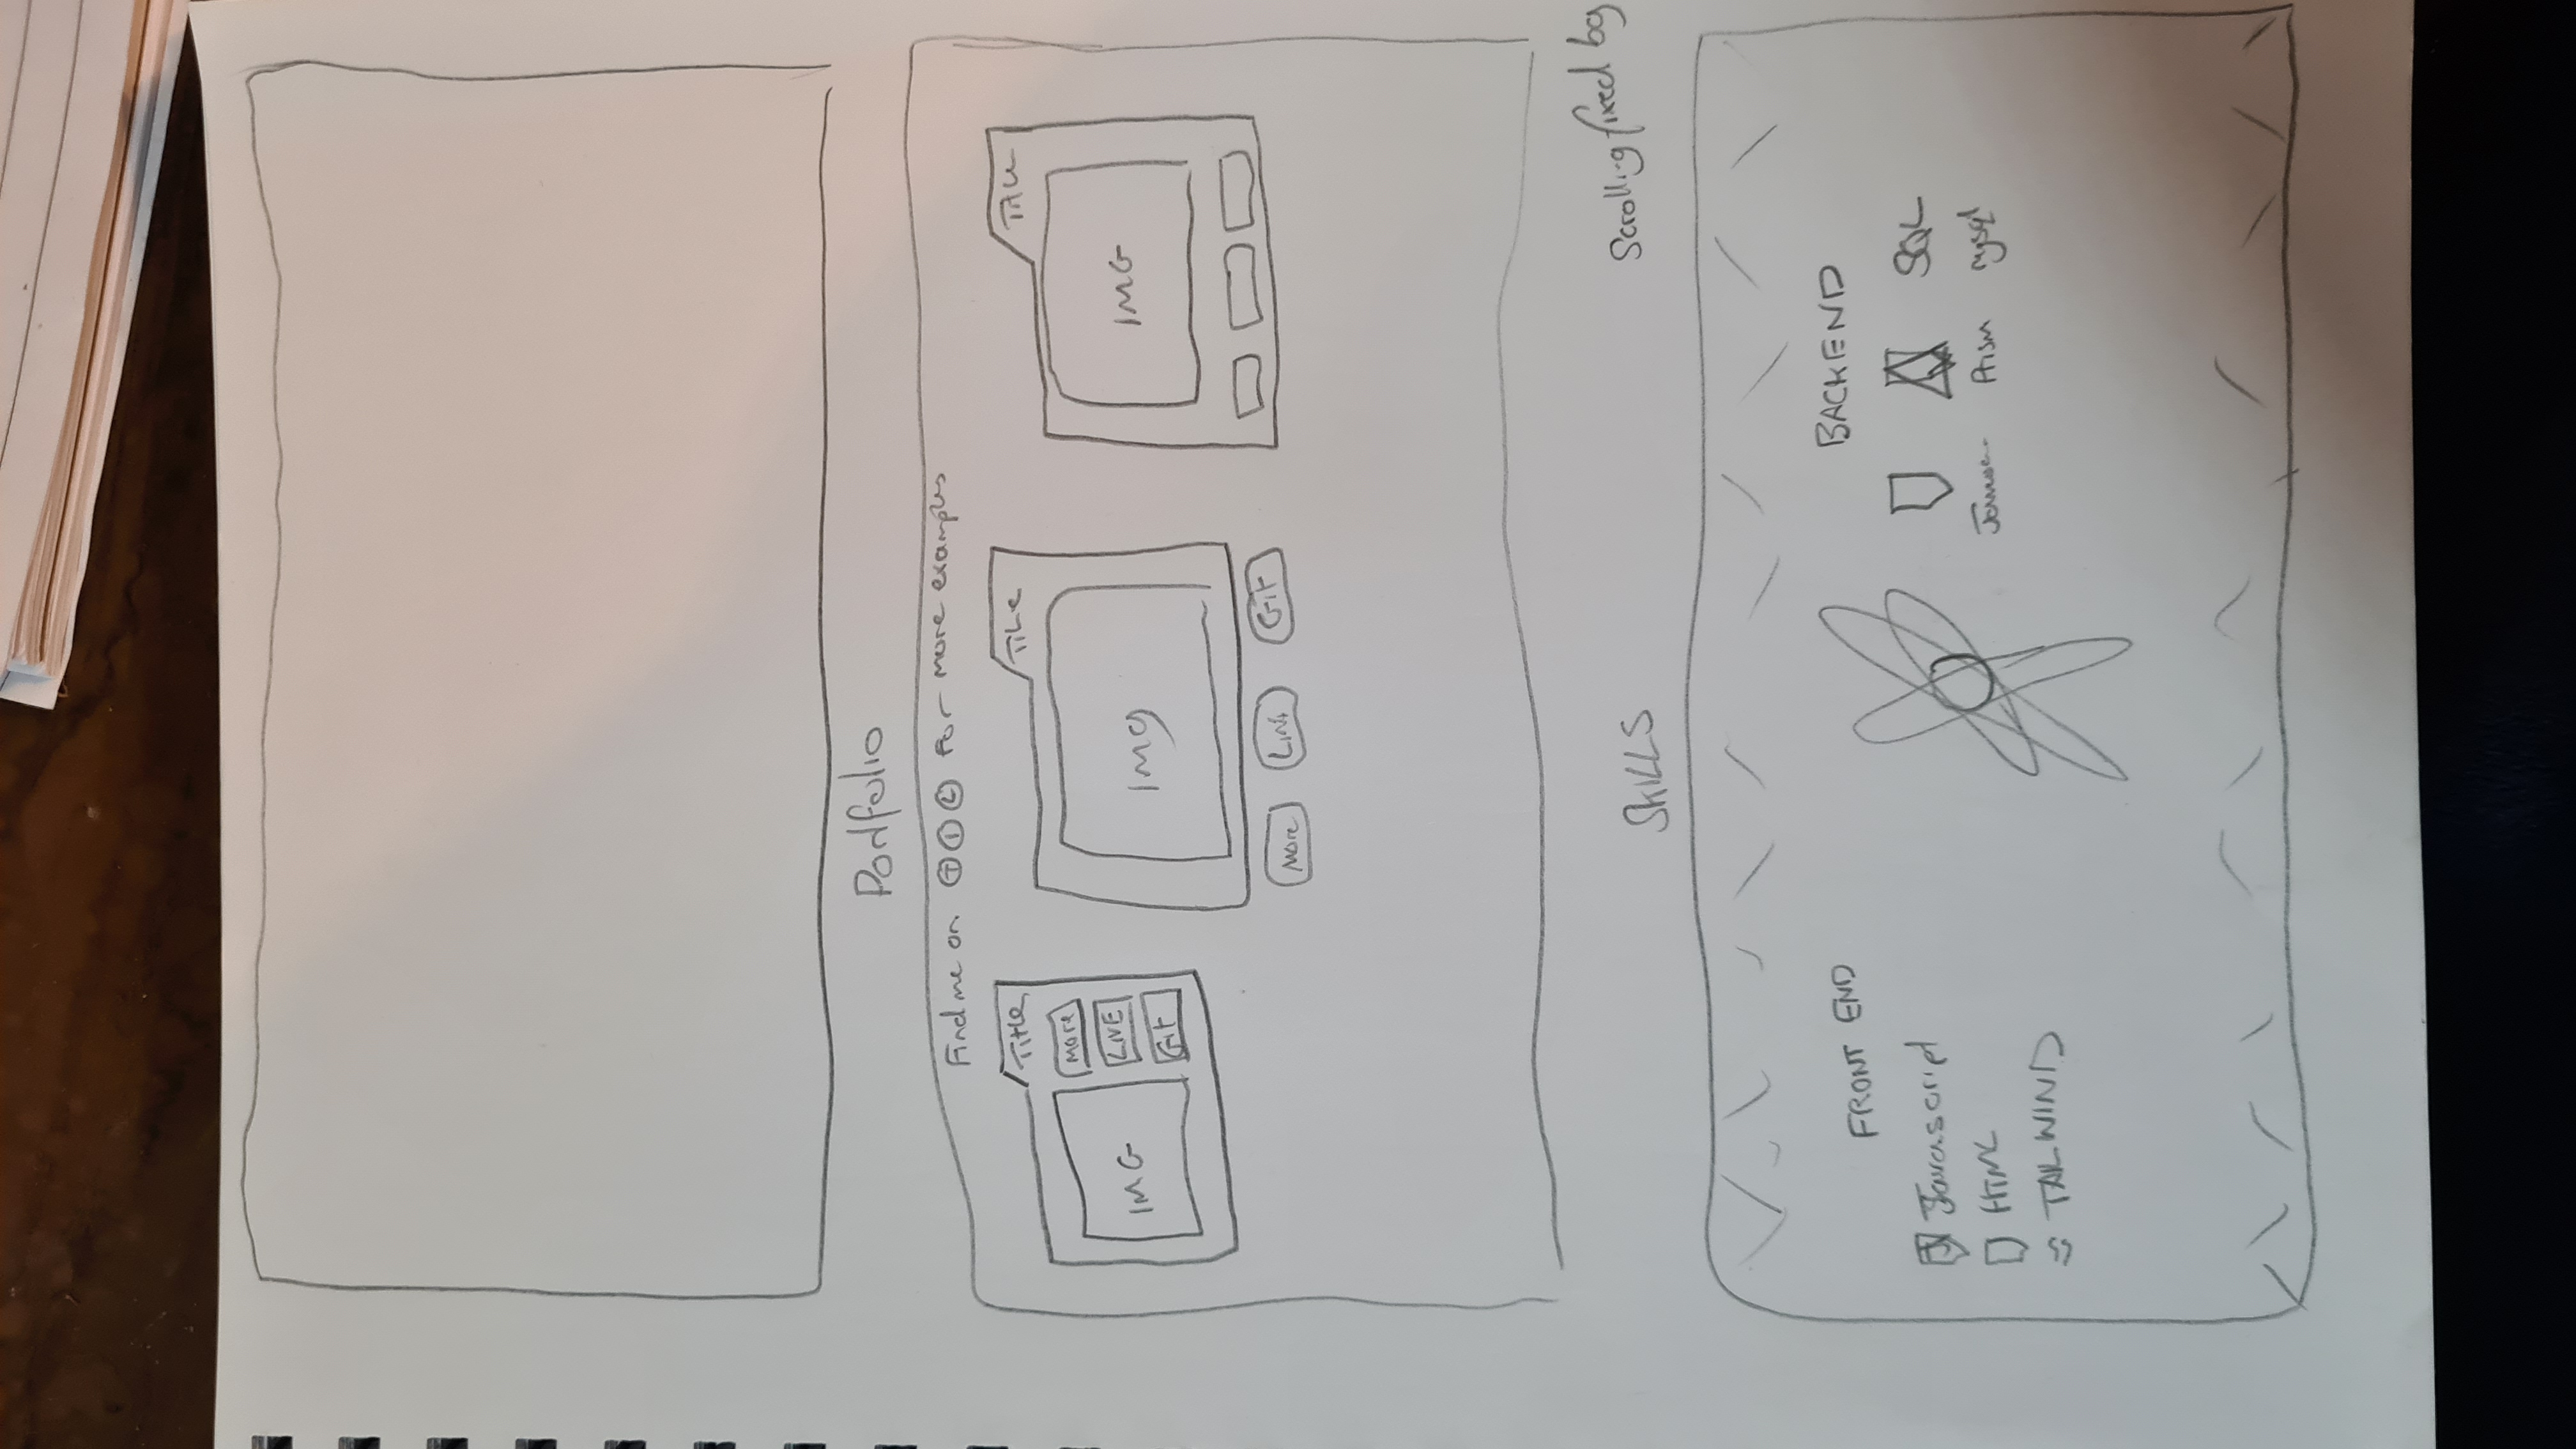 Portfolio
Find me on T I L for more examples
Title
More
LIVE
Git
IMG
Title
Img
More
Link
Git
Title
IMG
Scrolling fixed bg
SKILLS
FRONT END
Javascript
HTML
TAILWIND
BACKEND
SQL
Prism
mysql